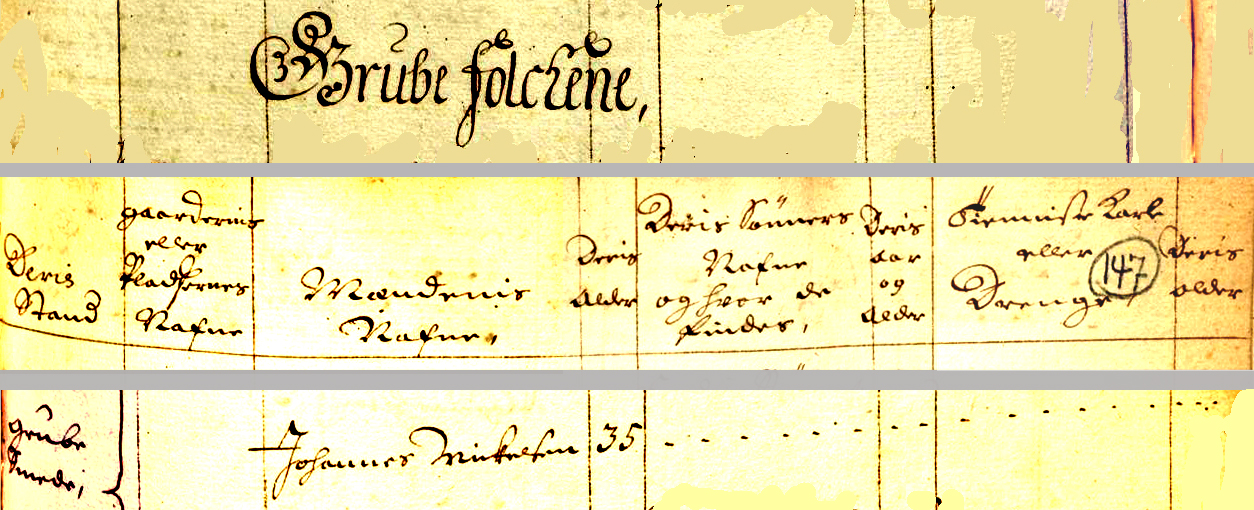 Grube folchene,
Deris
Stand
gaardernis
eller
Pladsernes
Nafne
Mændenis
Nafne,
Deris
Alder
Deris Sønners
Nafne
og hvor de
findes,
Deris
aar
og
Alder
Tienniste Karle
eller
Drenge
147
Deris
Alder
Grube
Smede,
Johannes Mickelsen 35